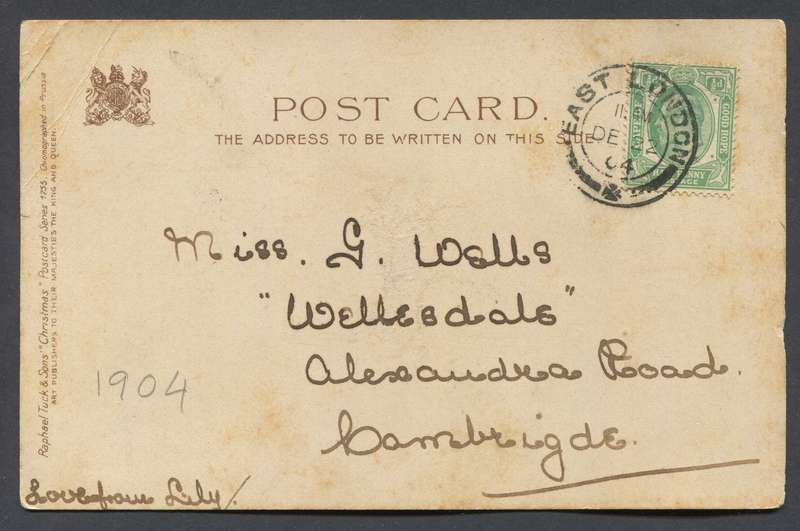 POST CARD.
THE ADDRESS TO BE WRITTEN ON THIS SIDE
EAST LONDON
DE
04
GOOD HOPE
HALF
Miss. G. Wells
"Wellesdale"
Alexandra Road.
Cambrigde.
1904
Love from Lily/.
Raphael Tuck & Sons' "Christmas" Postcard Series 1755. Chromographed in Prussia
ART PUBLISHERS TO THEIR MAJESTIES THE KING AND QUEEN.